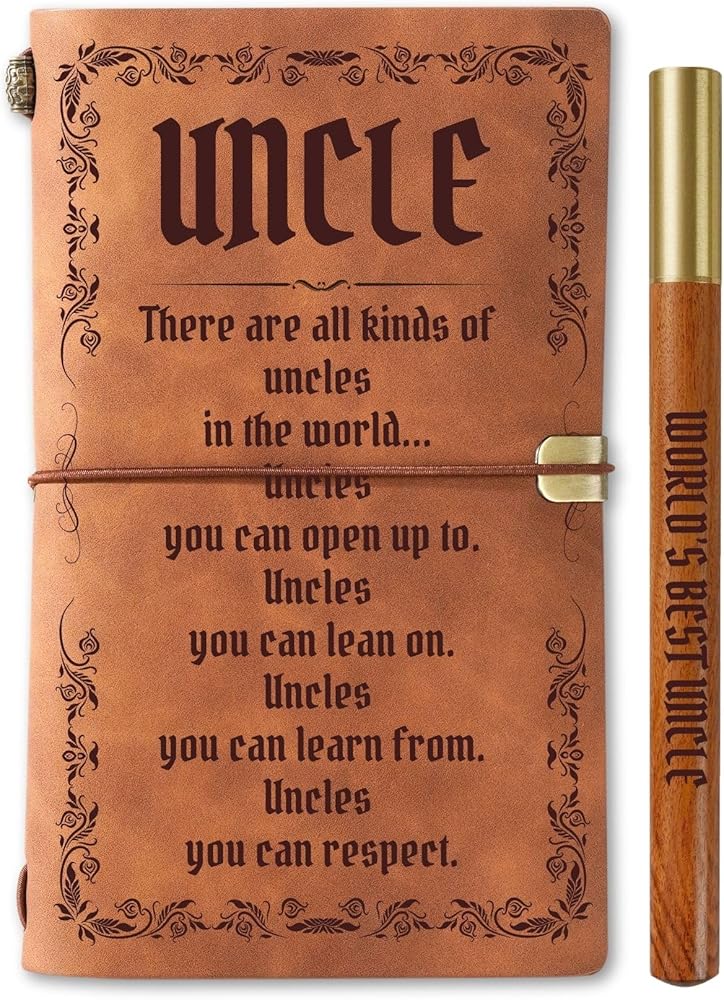 UNCLE
There are all kinds of
uncles
in the world...
Uncles
you can open up to.
Uncles
you can lean on.
Uncles
you can learn from.
Uncles
you can respect.
WORLD'S BEST UNCLE